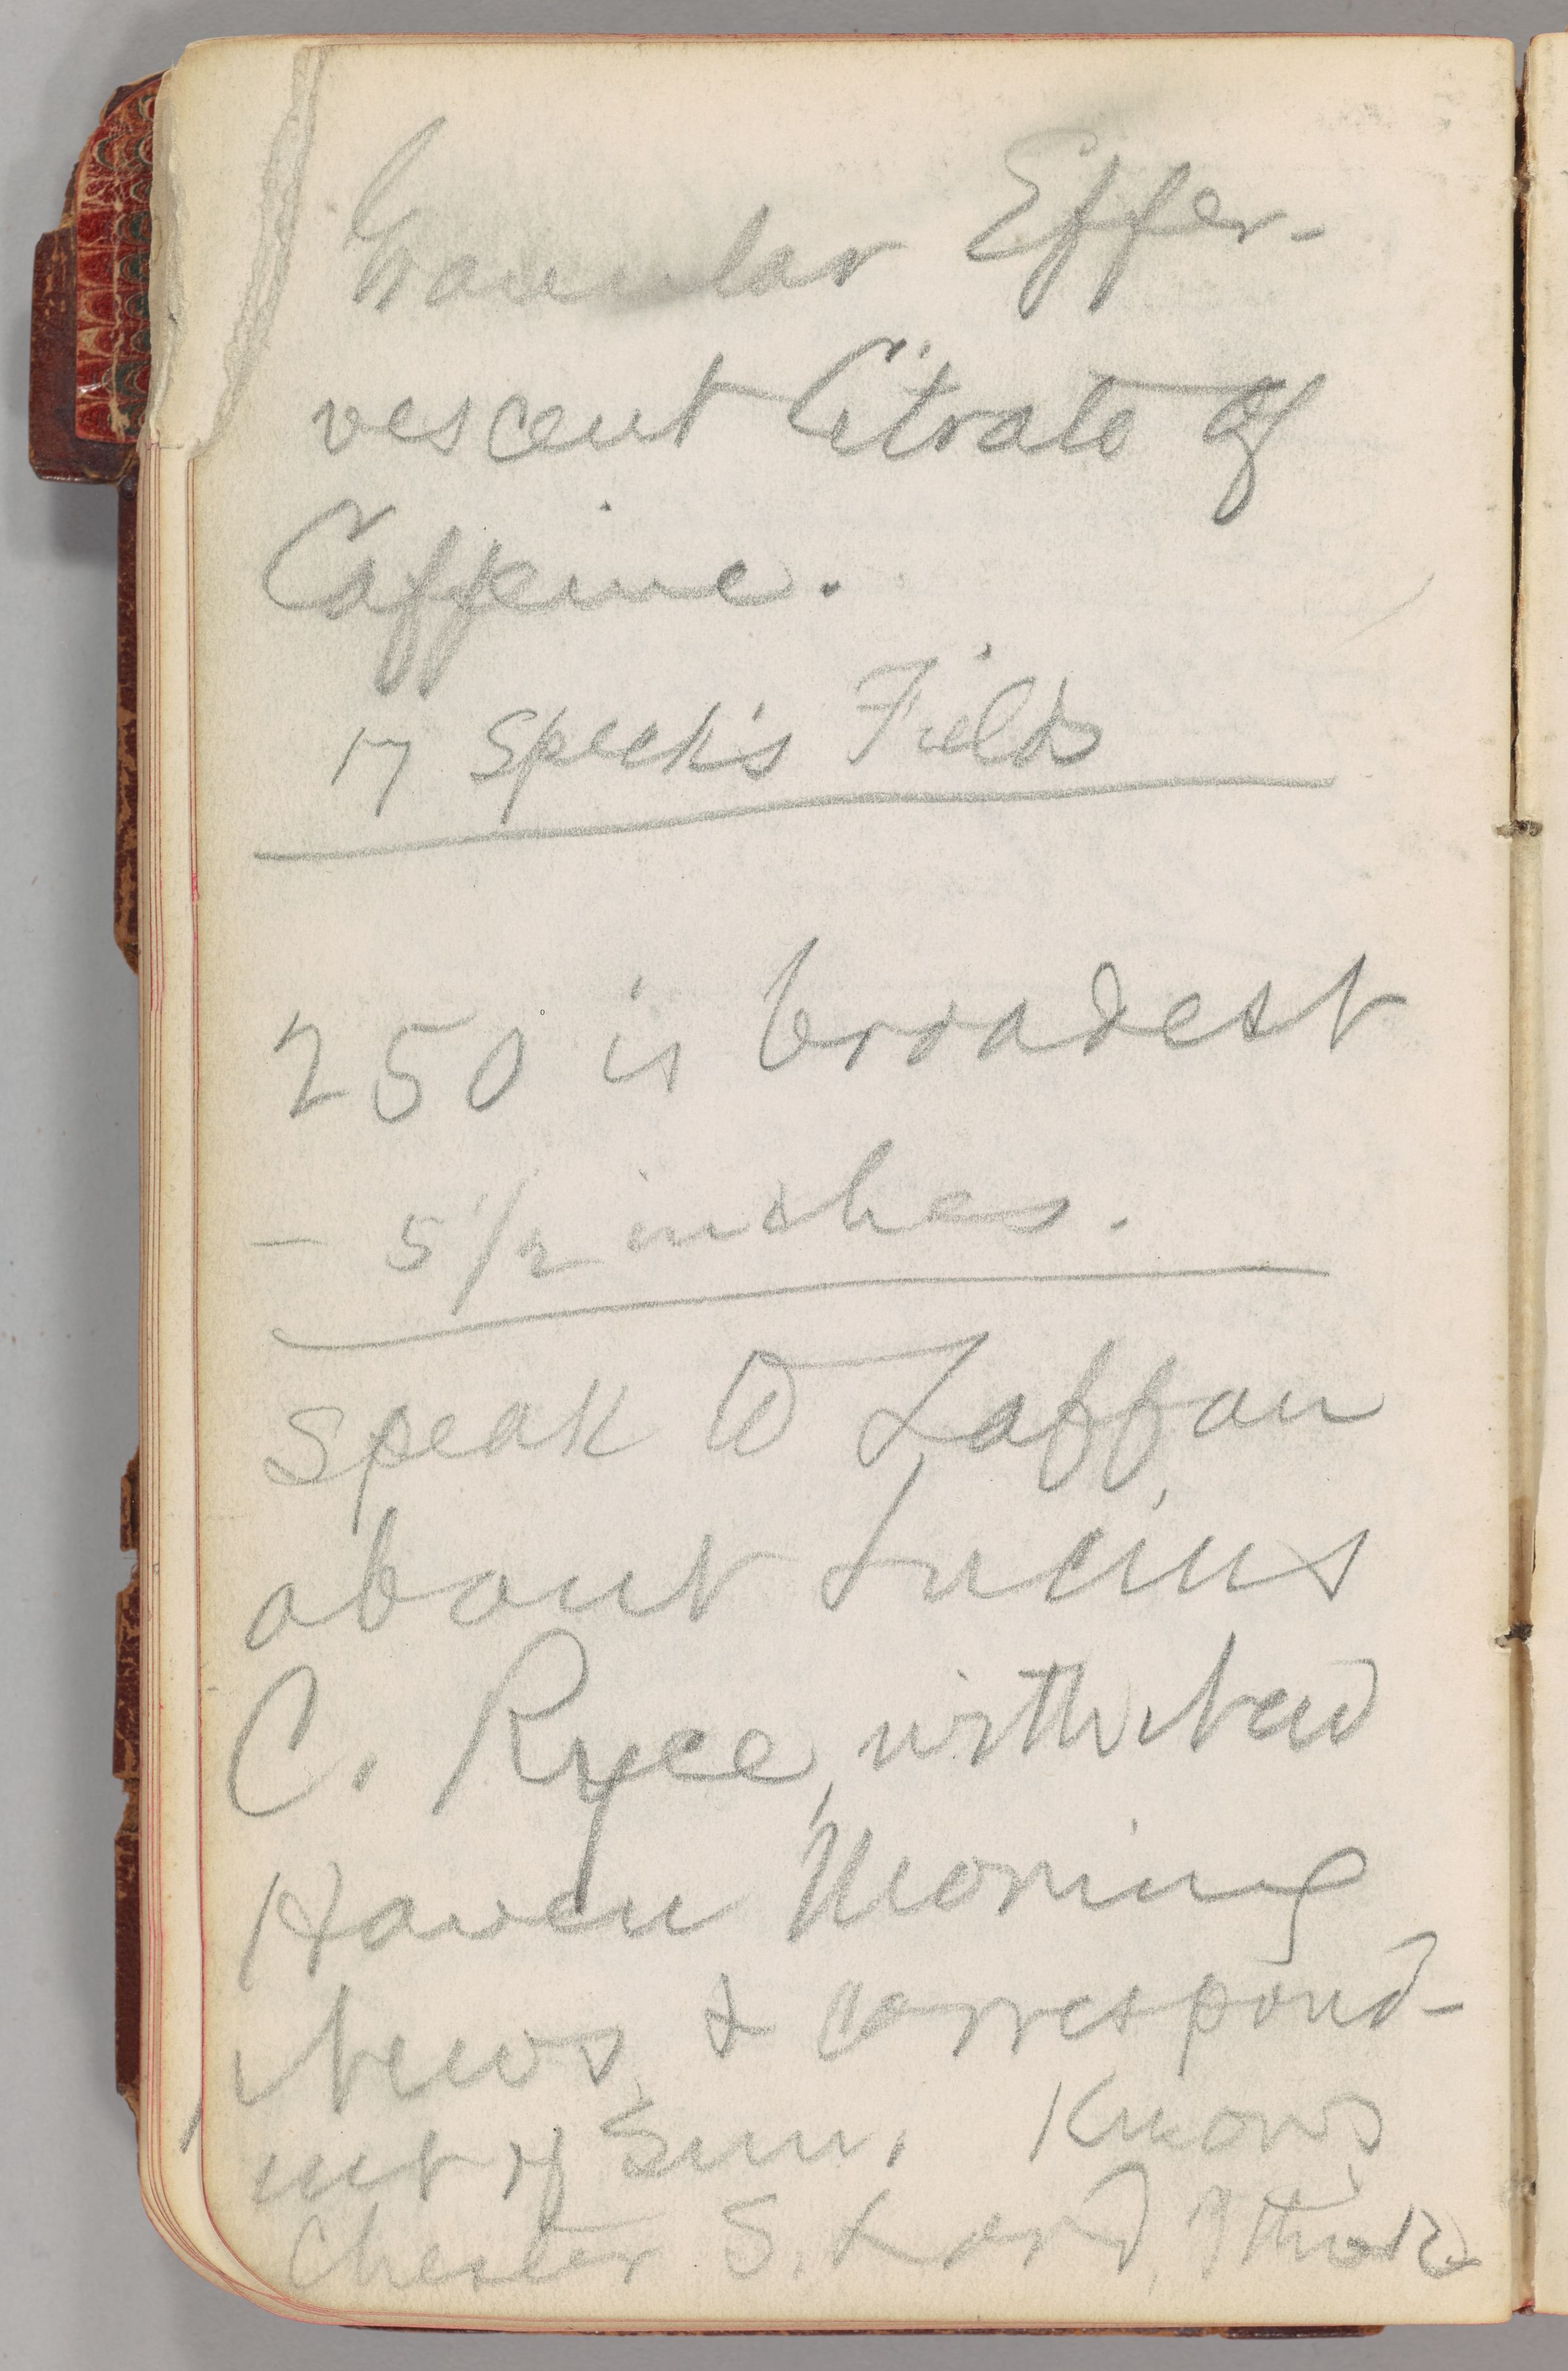 Granular Effer-
vescent Citrate of
Caffeine.
17 Speek's Fields
250 is broadest
— 5 1/2 inches.
Speak to Laffan
about Lucius
C. Ryce, with New
Haven Morning
News, & correspond-
ent of Sun. Knows
Chester S. Lord, I think